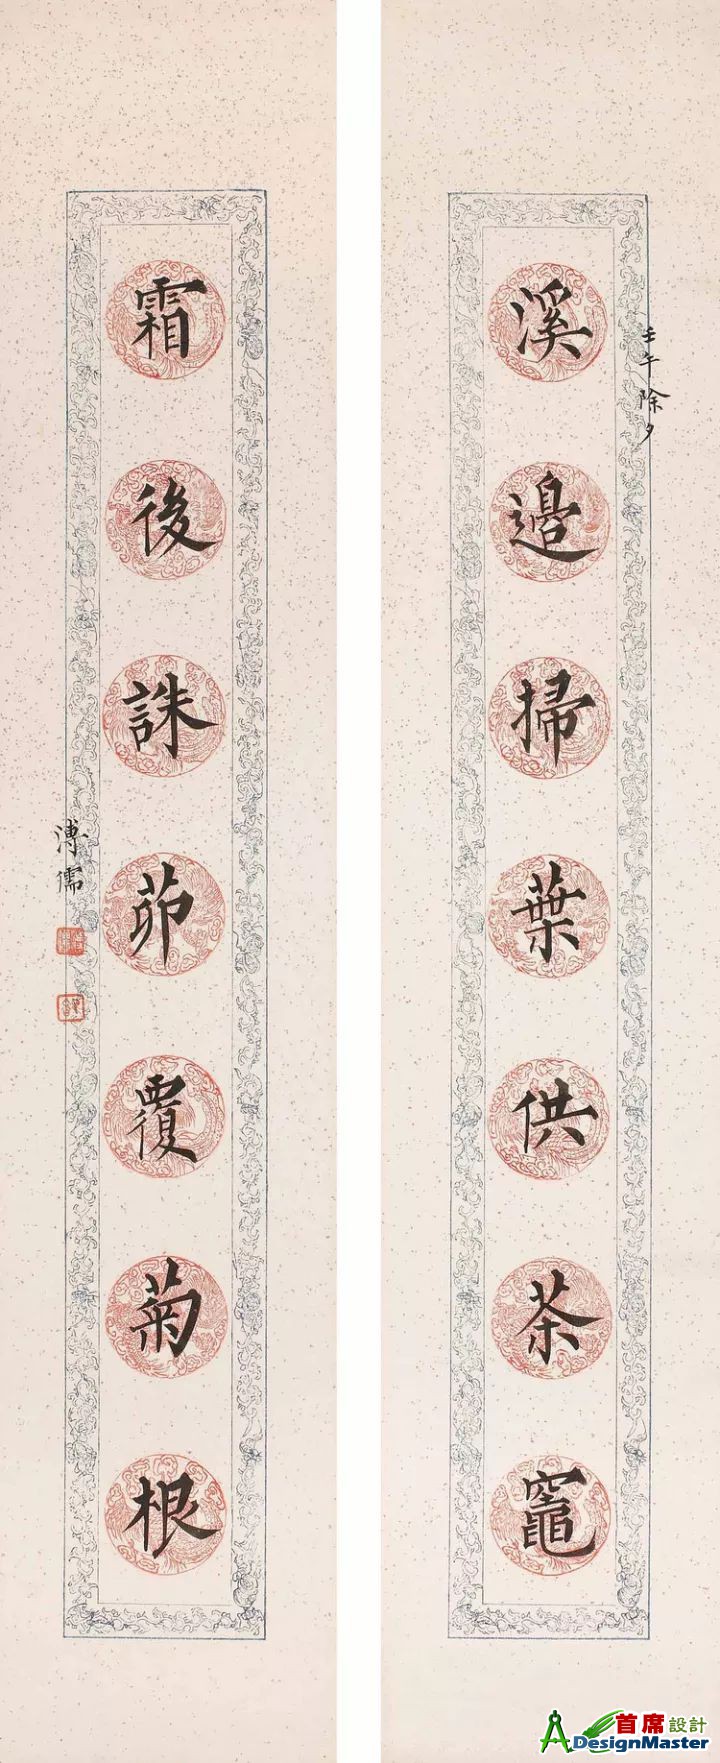 壬午除夕
溪邊掃葉供茶竈
霜後誅茆覆菊根
溥儒
首席設計
ADesignMaster